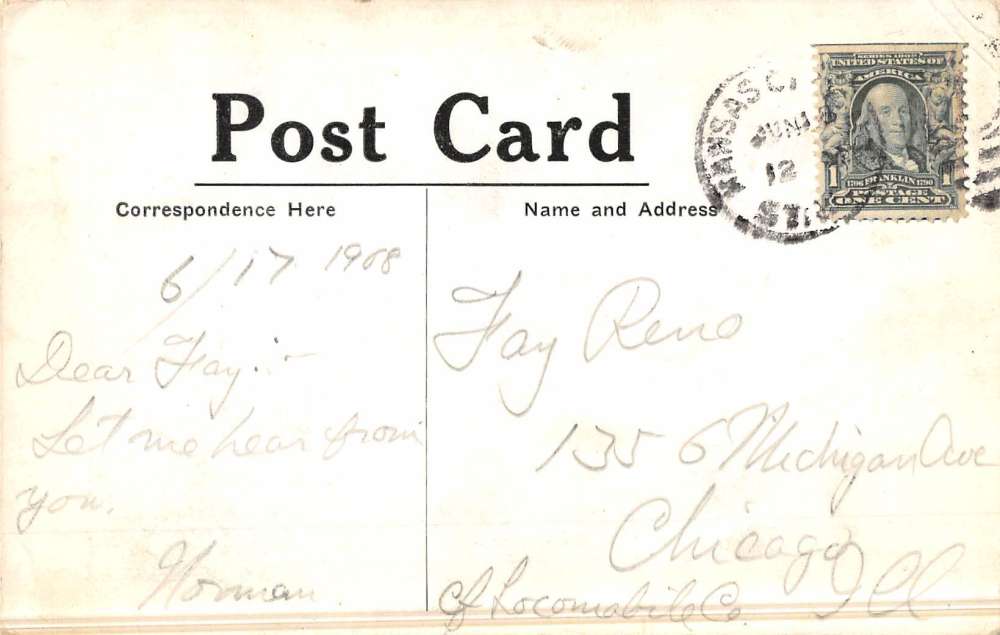 Post Card
Correspondence Here
Name and Address
KANSAS C
JUN 1
12
SERIES 1902
UNITED STATES OF
AMERICA
1 1706 FRANKLIN 1790 1
POSTAGE
ONE CENT
6/17 1908
Dear Fay:-
Let me hear from
you.
Norman
Fay Reno
1356 Michigan Ave
Chicago
Ill
c/o Locomobile Co